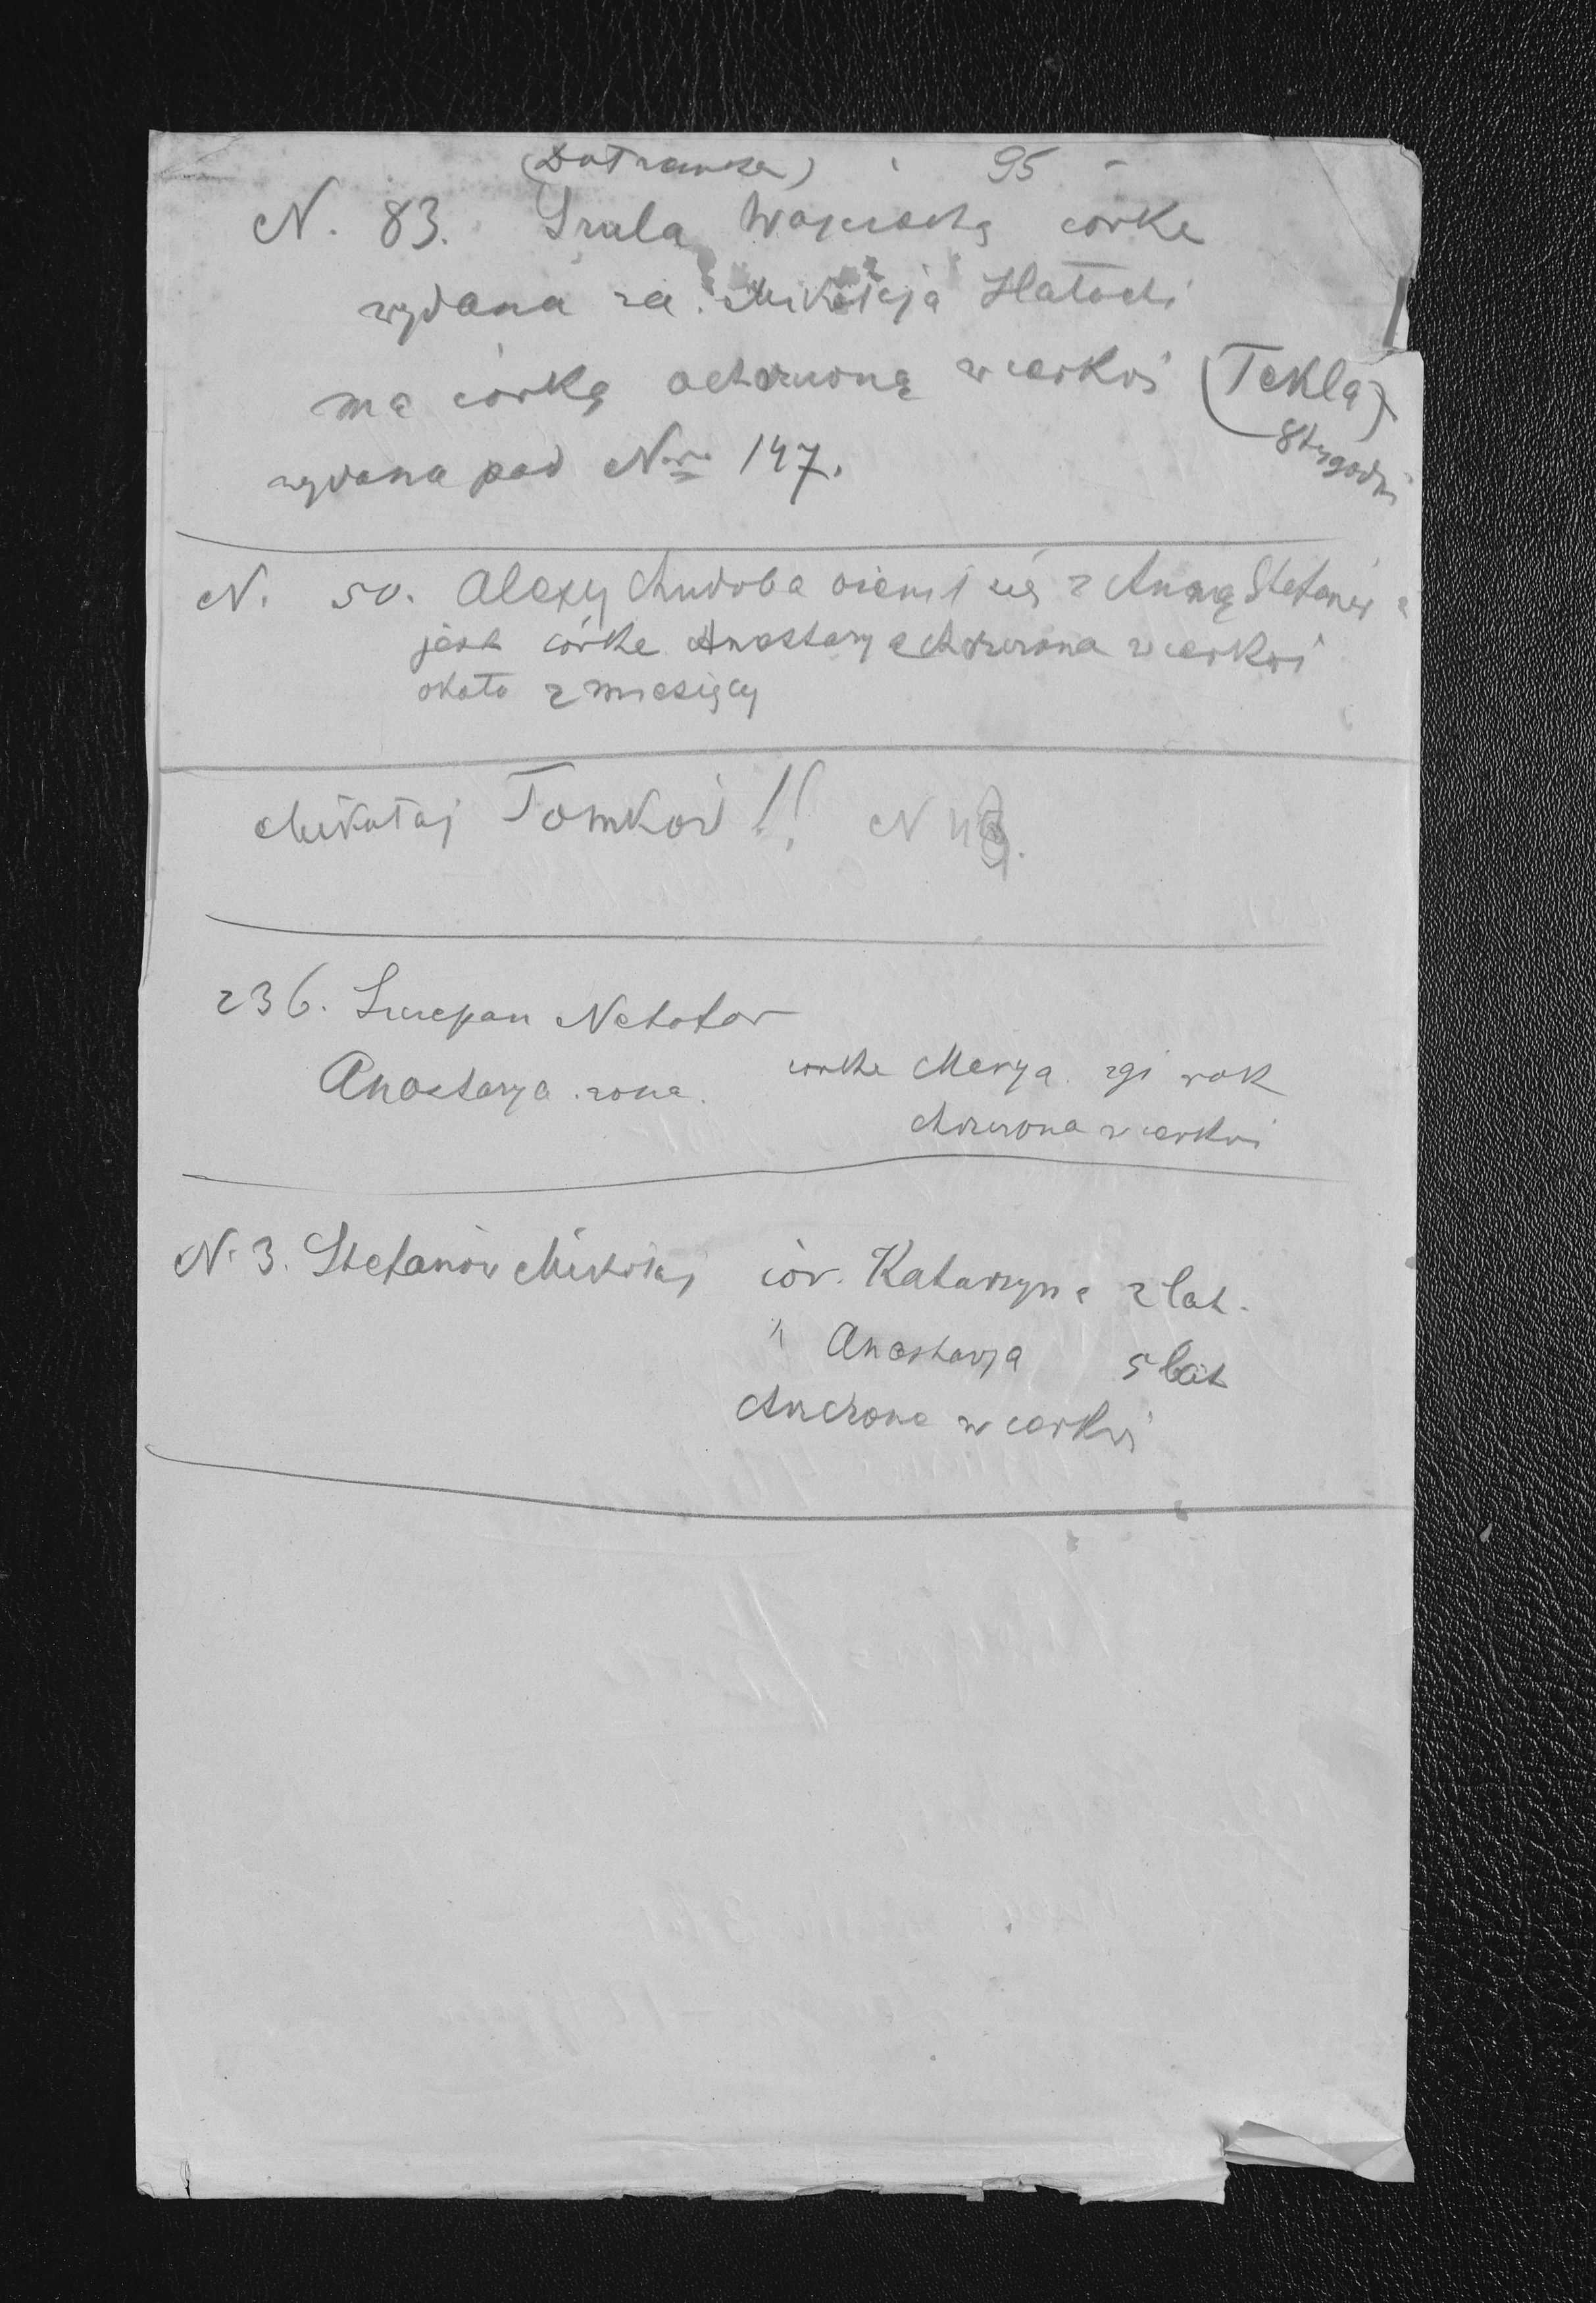 95
N. 83. Szula Wojciecha córka
wydana za Mikołaja Hałachi
ma córkę ochrzconą w cerkwi (Tekla)
8 tygodni
wydana pod Nro 147.
N. 50. Alexy Chudoba ożenił się z Anną Stefanów
jest córka Anastazya chrzczona w cerkwi
około 2 miesięcy
Mikołaj Tomków !! N
236. Szczepan Netotar
Anastazya żona. córka Marya 2gi rok
chrzczona w cerkwi
N. 3. Stefanów Mikołaj cór. Katarzyna 2 lat.
" Anastazya 5 lat
chrzczone w cerkwi